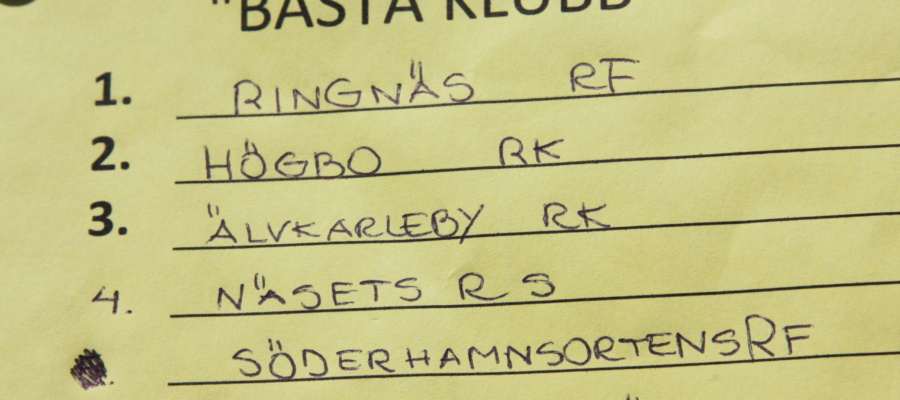 "BÄSTA KLUBB
1. RINGNÄS RF
2. HÖGBO RK
3. ÄLVKARLEBY RK
4. NÄSETS R S
SÖDERHAMNSORTENS RF